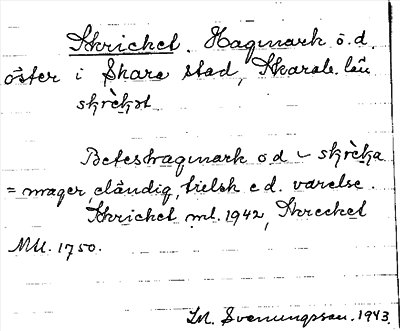 Skricket. Hagmark ö.d.
öster i Skara stad, Skarab. län
skrὲkət
Beteshagmark o d ~ skrὲka
= mager, eländig, tielsk e d. varelse.
Skricket ml. 1942, Skrecket
MU. 1750.
M. Svenungsson. 1943.